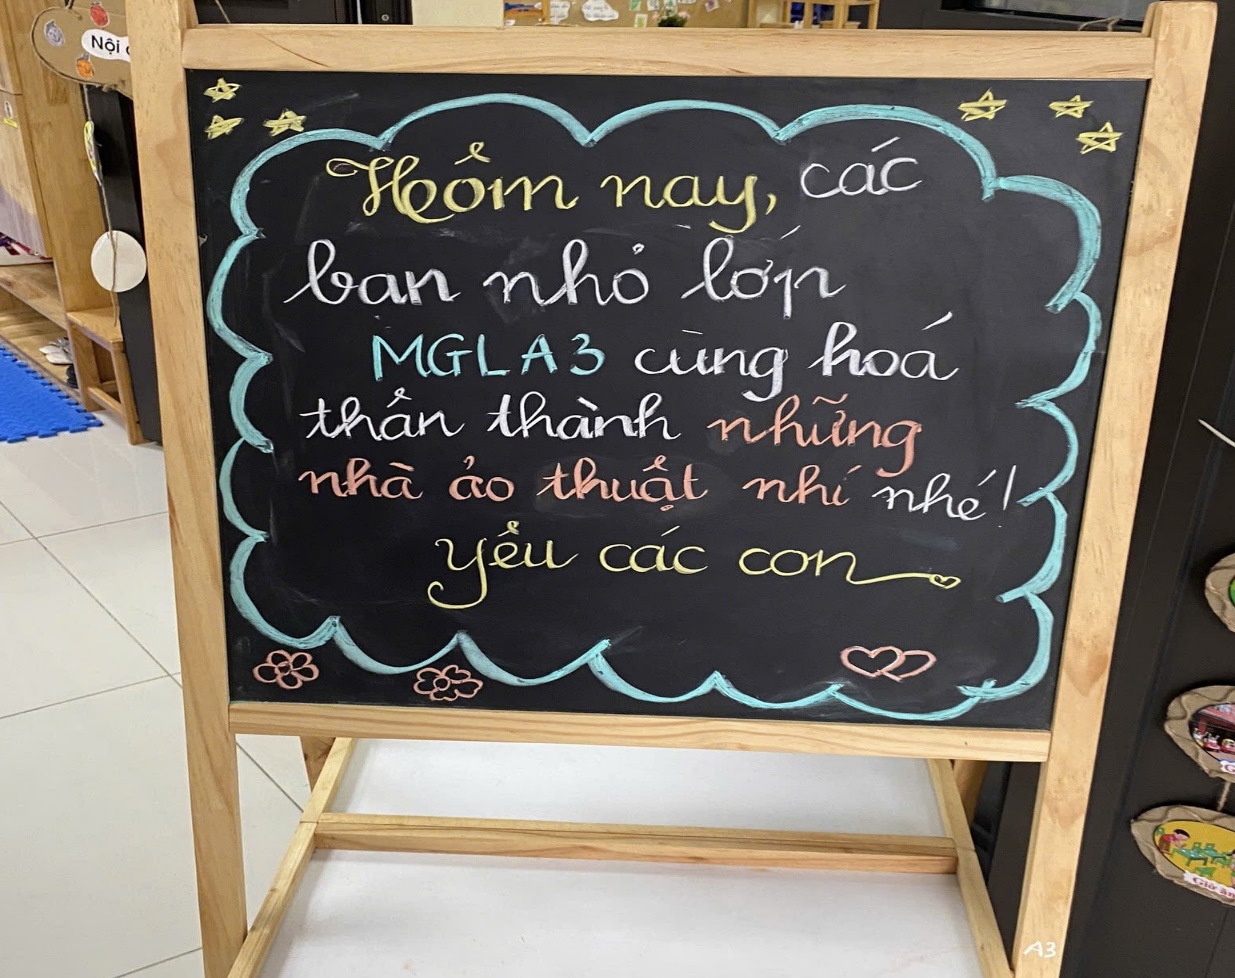 Nội
Hôm nay, các
bạn nhỏ lớp
MGL A3 cùng hoá
thân thành những
nhà ảo thuật nhí nhé!
yêu các con
A3
Giờ ăn